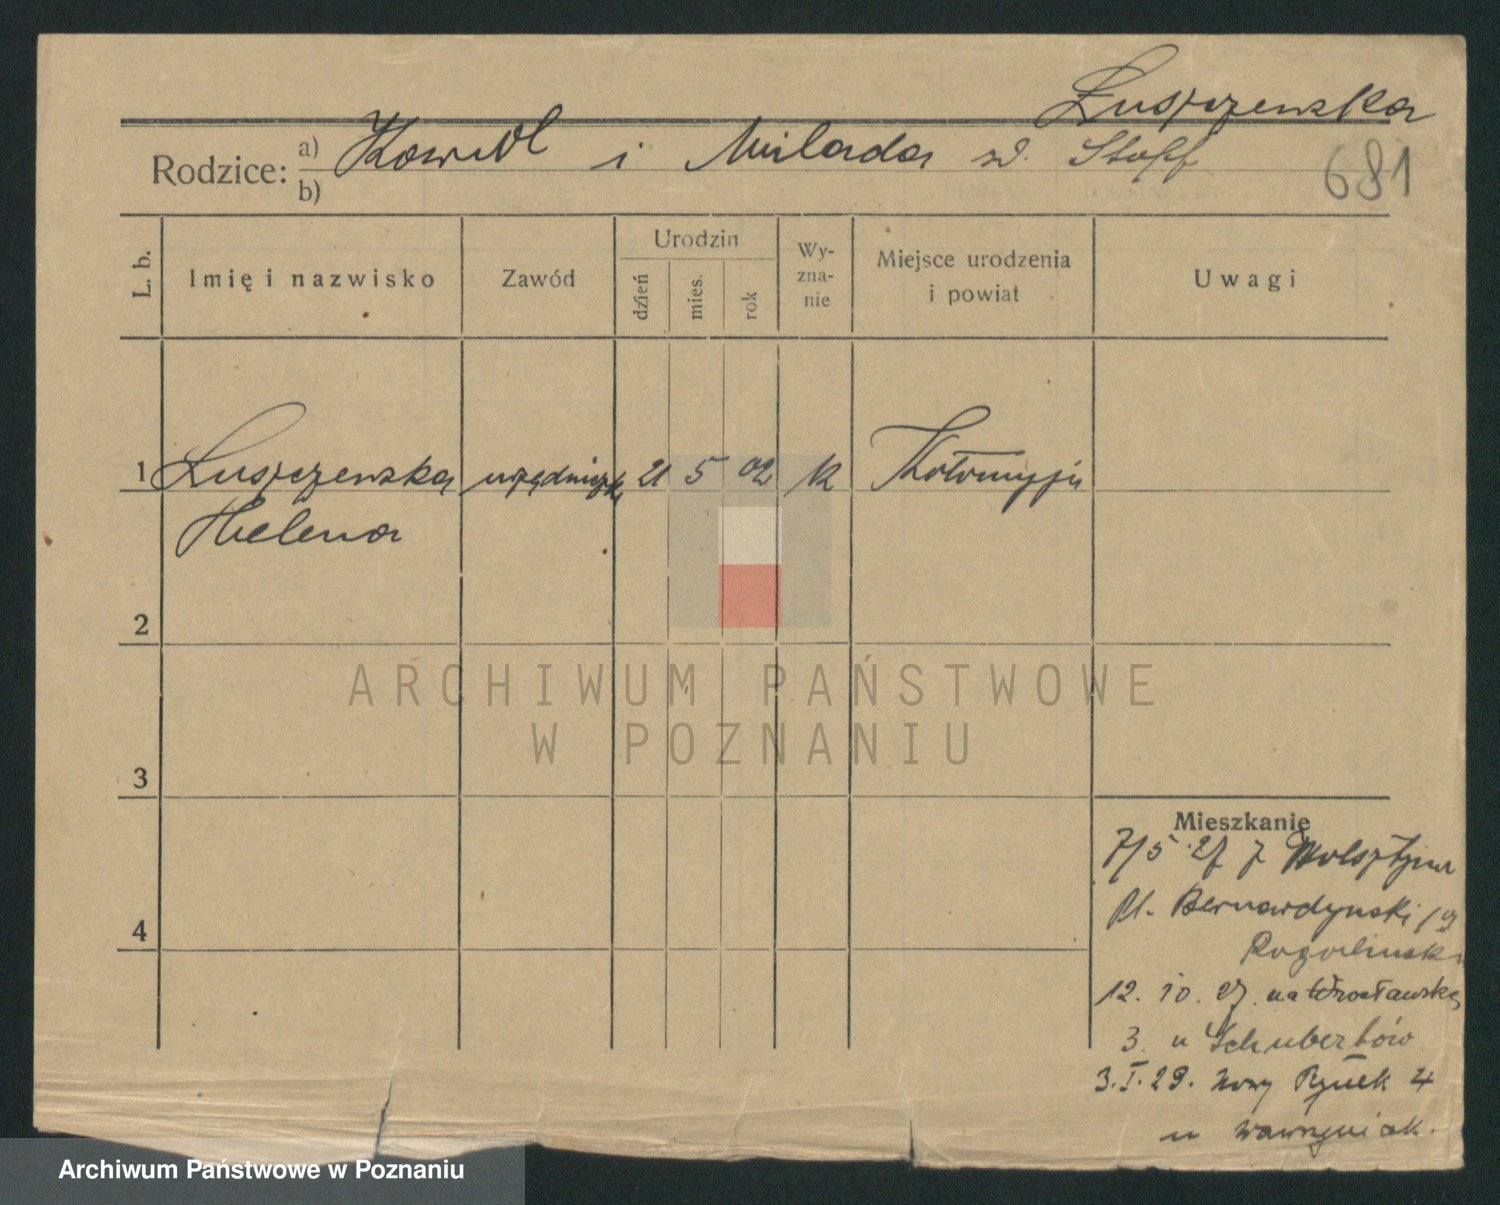 Łuszczewska
Rodzice: a) Karol i Milada zd. Stoff
b)
681
L. b.
Imię i nazwisko
Zawód
Urodzin
dzień
mies.
rok
Wy-
zna-
nie
Miejsce urodzenia
i powiat
Uwagi
1 Łuszczewska urzędniczk 21 5 02 k Kołomyja
Helena
2
ARCHIWUM PAŃSTWOWE
W POZNANIU
3
Mieszkanie
7/5 27 z Wolsztyna
Pl. Bernardyński
4
Rogaliński
12. 10. 27. na Wrocławską
3. u Schubertów
3.I.29. Nowy Rynek 4
u Wawrzyniak.
Archiwum Państwowe w Poznaniu